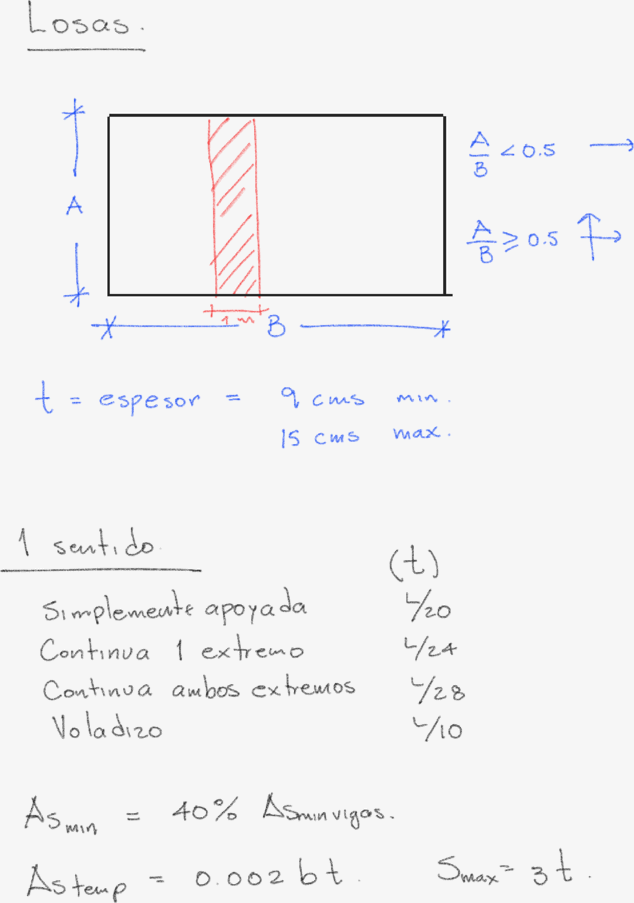 Losas.
A/B < 0.5 →
A
A/B ≥ 0.5
1 m
B
t = espesor = 9 cms min.
15 cms max.
1 sentido.
(t)
Simplemente apoyada L/20
Continua 1 extremo L/24
Continua ambos extremos L/28
Voladizo L/10
Asmin = 40% Asminvigas.
Astemp = 0.002 bt. Smax = 3t.